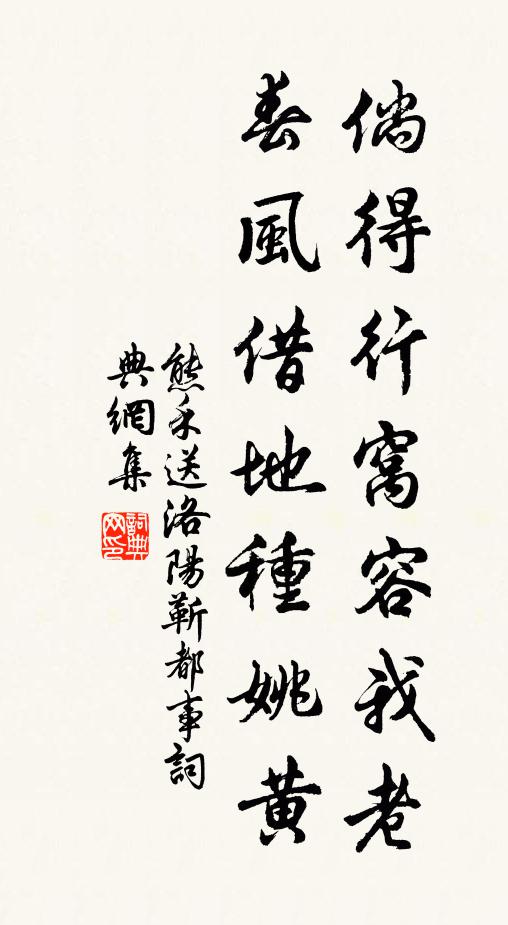 倘得行窩容我老
春風借地種姚黃
熊禾送洛陽靳都事詞
典網集
詞典網印